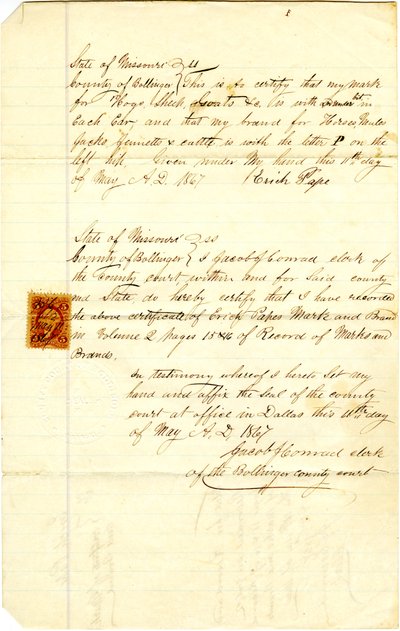 State of Missouri } ss
County of Bollinger } This is to certify that my mark
for Hogs, Sheep, Goats &c. is with in
Each Ear, and that my brand for Horses, Mules
Jacks, Jennetts & cattle is with the letter P on the
left hip. Given under My hand this 11th day
of May A.D. 1867 Erich Pape
State of Missouri } ss
County of Bollinger } I Jacob J Conrad clerk of
the County court within and for said county
and State, do hereby certify that I have recorded
the above certificate, of Erich Papes Mark and Brand
in Volume 2 pages 15 & 16 of Record of Marks and
Brands,
In testimony whereof I hereto Set my
hand and affix the Seal of the county
court at office in Dallas this 11th day
of May A, D, 1867
Jacob J Conrad clerk
of the Bollinger county court